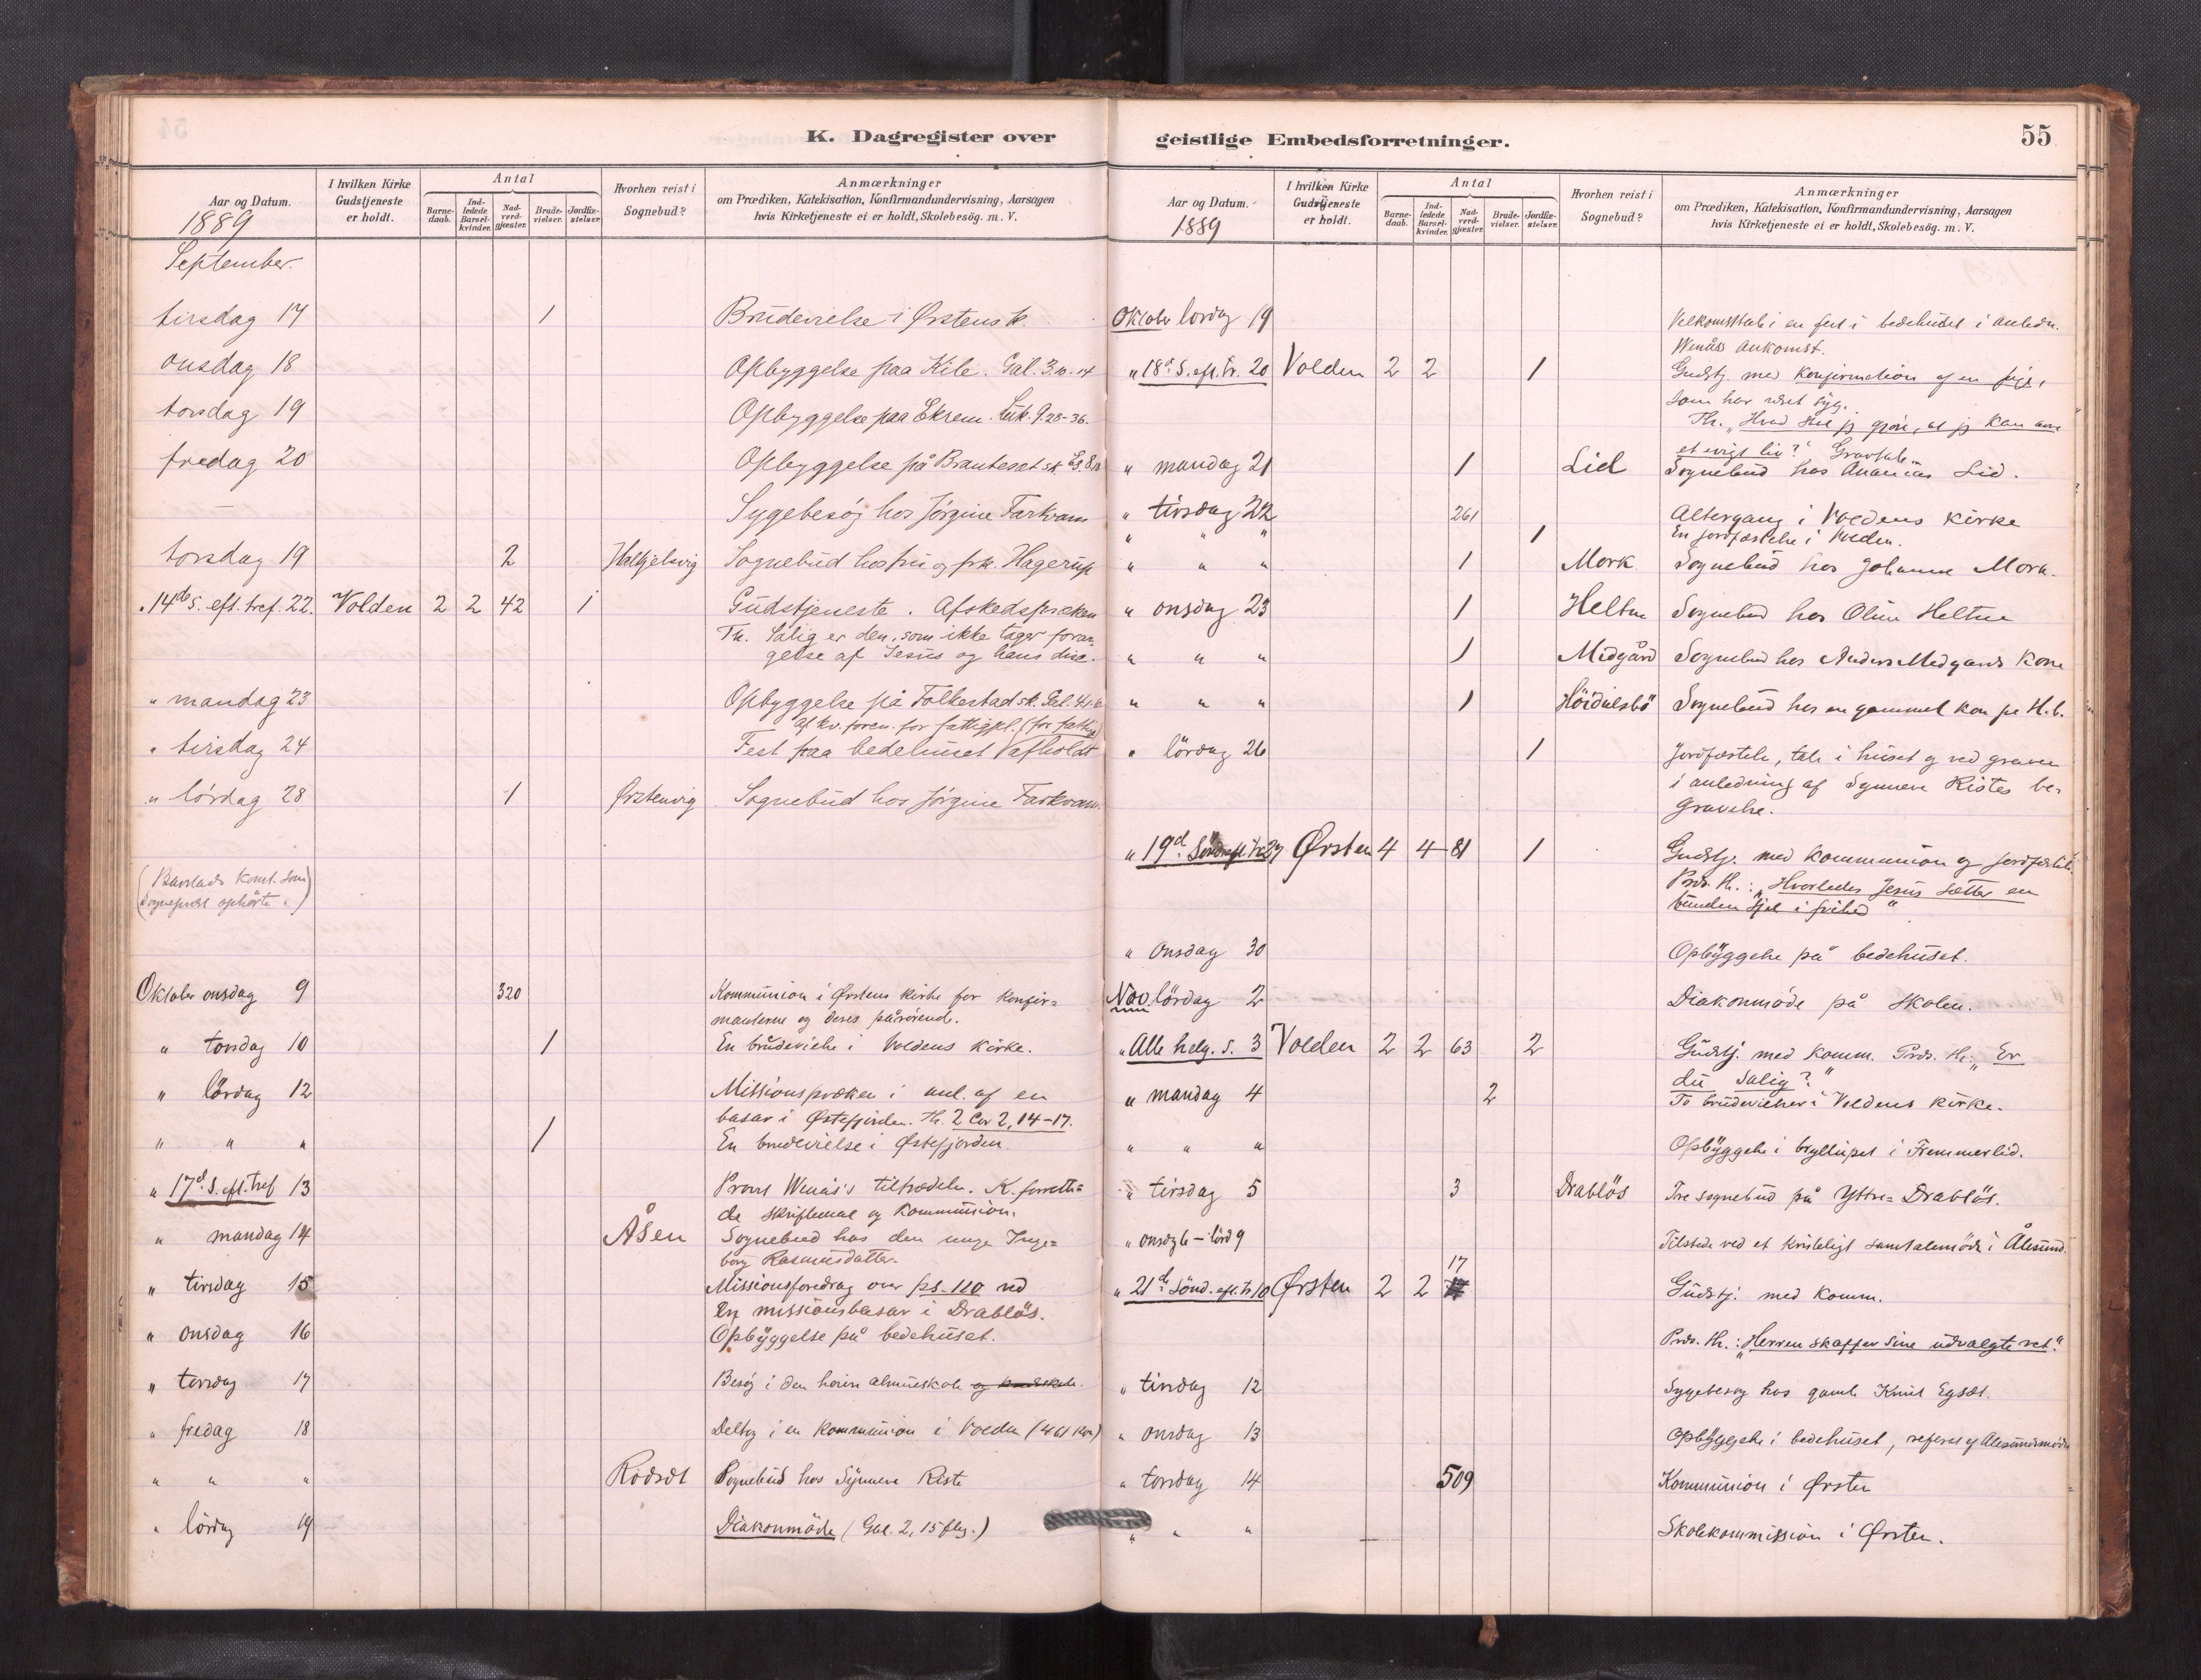 K. Dagregister over
Aar og Datum.
1889
I hvilken Kirke Gudstjeneste er holdt.
Antal
Barnedaab.
Indledede Barselkvinder.
Nadverdgjæster.
Brudevielser.
Jordfæstelser.
Hvorhen reist i Sognebud?
Anmærkninger
om Prædiken, Katekisation, Konfirmandundervisning, Aarsagen
hvis Kirketjeneste ei er holdt, Skolebesög. m. V.
September.
tirsdag 17 1 Brudevielse i Ørstens k.
onsdag 18 Opbyggelse paa Kile. Gal. 3 10-14
torsdag 19 Opbyggelse paa Ekrem. Luk. 9 28-36.
fredag 20 Opbyggelse på Brauteset sk.
Sygebesög hos Jörgine Farkvam
torsdag 19 2 Halkjelsvig Sognebud hos fru og frk. Hagerup
" 14de s. eft. tref. 22. Volden 2 2 42 1 Gudstjeneste. Afskedspræken
Th. Salig er den, som ikke tager forar-
gelse af Jesus og hans disc.
" mandag 23 Opbyggelse på Folkestad sk. Gal. 4
af kv. foren. for fattigpl. (for fattige)
" tirsdag 24 Fest paa bedehuset Vafholdt
" lördag 28 1 Ørstenvig Sognebud hos Jörgine Farkvam.
(Barstads konst. som
sognepræst ophörte.)
Oktober onsdag 9 320 Kommunion i Ørstens kirke for konfir=
manterne og deres pårörende.
" torsdag 10 1 En brudevielse i Voldens kirke.
" lördag 12 Missionspræken i anl. af en
basar i Østefjorden. Th. 2 Cor 2, 14-17.
" " " 1 En brudevielse i Østefjorden.
" 17d. S. eft. tref 13 Provst Wenås's tiltrædelse. K. forrett=
de skriftemål og kommunion.
" mandag 14 Åsen Sognebud hos den unge Inge=
borg Rasmusdatter.
" tirsdag 15 Missionsforedrag over ps. 110 ved
en missionsbasar i Drablös.
" onsdag 16 Opbyggelse på bedehuset.
" torsdag 17 Besög i den höiere almueskole
" fredag 18 Deltog i en kommunion i Volden (461 kom)
" " " Rödsæt Sognebud hos Synneve Riste
" lördag 19 Diakonmöde (Gal. 2, 15 flg.)
geistlige Embedsforretninger.
55
Aar og Datum.
1889
I hvilken Kirke Gudstjeneste er holdt.
Antal
Barnedaab.
Indledede Barselkvinder.
Nadverdgjæster.
Brudevielser.
Jordfæstelser.
Hvorhen reist i Sognebud?
Anmærkninger
om Prædiken, Katekisation, Konfirmandundervisning, Aarsagen
hvis Kirketjeneste ei er holdt, Skolebesög. m. V.
Oktober lördag 19 Velkomsttale i en fest i bedehuset i anledn.
Wenås's ankomst.
" 18d. S. eft. tr. 20 Volden 2 2 1 Gudstj. med konfirmation af en pige,
som har været syg.
Th. "Hvad skal jeg gjöre, at jeg kan arve
et evigt liv?" Gravtale.
" mandag 21 1 Lid Sognebud hos Ananias Lid.
" tirsdag 22 261 Altergang i Voldens kirke
" " " 1 En jordfæstelse i Volden.
" " " 1 Mork Sognebud hos Johanne Mork.
" onsdag 23 1 Heltne Sognebud hos Oline Heltne
" " " 1 Midgård Sognebud hos Anders Midgards kone
" " " 1 Höidalsbö Sognebud hos en gammel kone på H.b.
" lördag 26 1 Jordfæstelse, tale i huset og ved graven
i anledning af Synneve Ristes be-
gravelse.
" 19d. Sönd. eft. tr. 27 Ørsten 4 4 81 1 Gudstj. med kommunion og jordfæstelse.
Præd. th.: "Hvorledes Jesus sætter en
bunden sjæl i frihed"
" onsdag 30 Opbyggelse på bedehuset.
Nov. lördag 2 Diakonmöde på skolen.
" Alle helg. s. 3 Volden 2 2 63 2 Gudstj. med komm. Præd. th.: "Er
du salig?"
" mandag 4 2 To brudevielser i Voldens kirke.
" " " Opbyggelse i bryllupet i Fremmerlid.
" tirsdag 5 3 Drablös Tre sognebud på Ytre=Drablös.
" onsdg 6 - lörd 9 Tilstede ved et kristeligt samtalemöde i Ålesund.
17
" 21de Sönd. eft. tr. 10 Ørsten 2 2 Gudstj. med komm.
Præd. th.: "Herren skaffer sine udvalgte ret."
" tirsdag 12 Sygebesög hos gamle Knut Egset.
" onsdag 13 Opbyggelse i bedehuset, referat af Alesundsmödet
" torsdag 14 509 Kommunion i Ørsten
" " " Skolekommission i Ørsten.